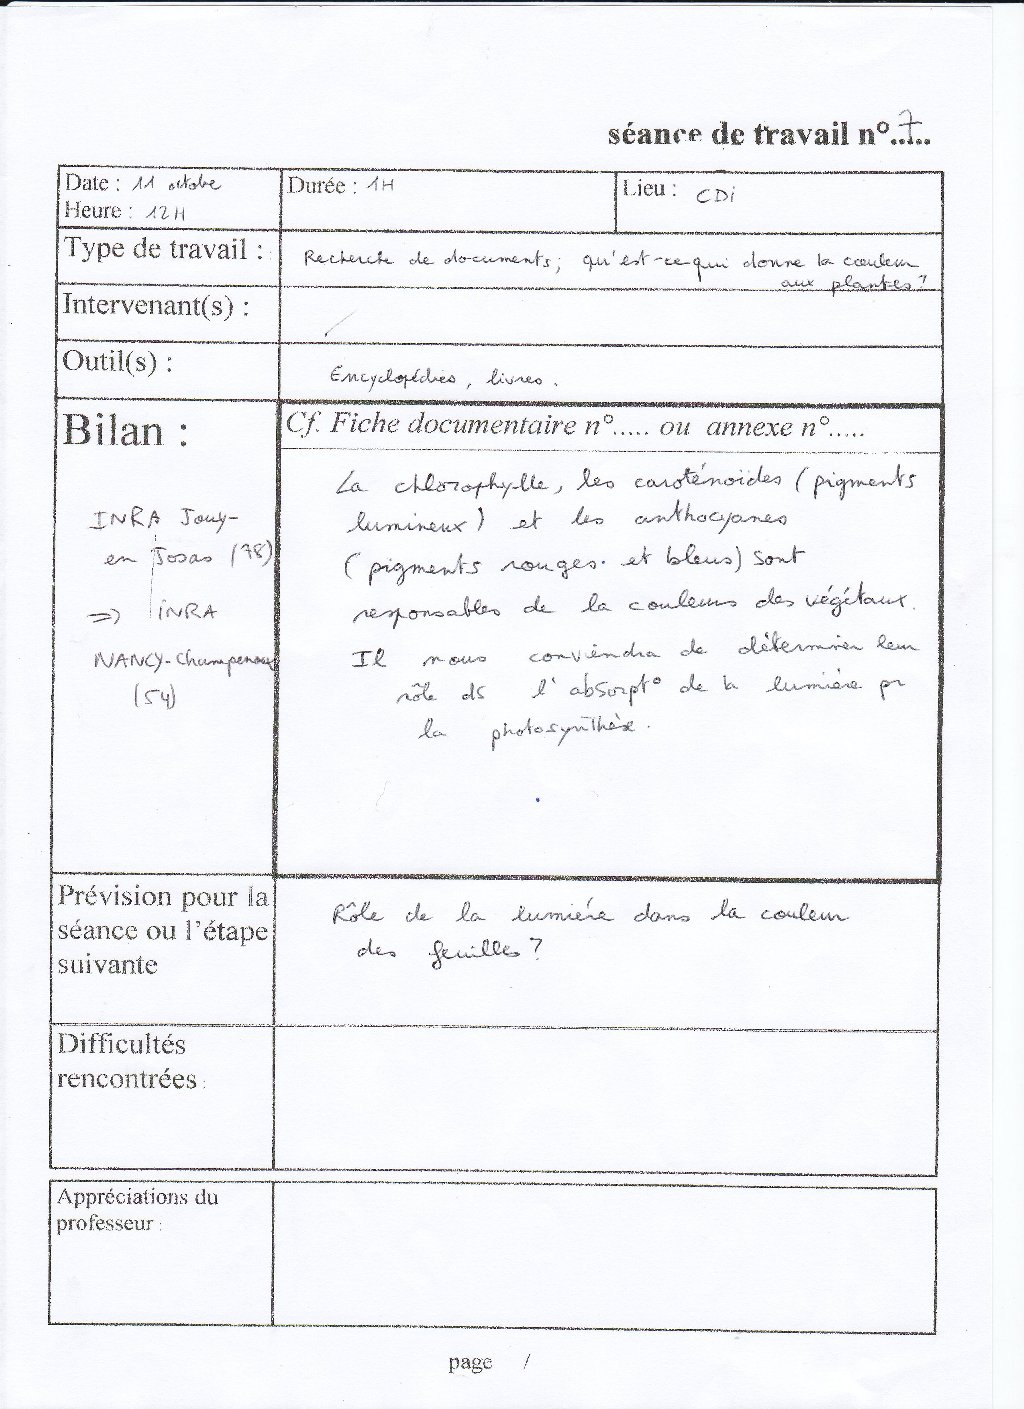 séance de travail n°..7..
Date : 11 octobre
Heure : 12H
Durée : 1H
Lieu : CDi
Type de travail :
Recherche de documents; qu'est-ce qui donne la couleur
aux plantes?
Intervenant(s) :
/
Outil(s) :
Encyclopédies, livres.
Bilan :
INRA Jouy-
en Josas (78)
=> INRA
NANCY-Champenoux
(54)
Cf. Fiche documentaire n°..... ou annexe n°.....
La chlorophylle, les caroténoïdes (pigments
lumineux) et les anthocyanes
(pigments rouges et bleus) sont
responsables de la couleurs des végétaux.
Il nous conviendra de déterminer leur
rôle ds l'absorpt° de la lumière pr
la photosynthèse.
Prévision pour la
séance ou l'étape
suivante
Rôle de la lumière dans la couleur
des feuilles?
Difficultés
rencontrées :
Appréciations du
professeur :
page /